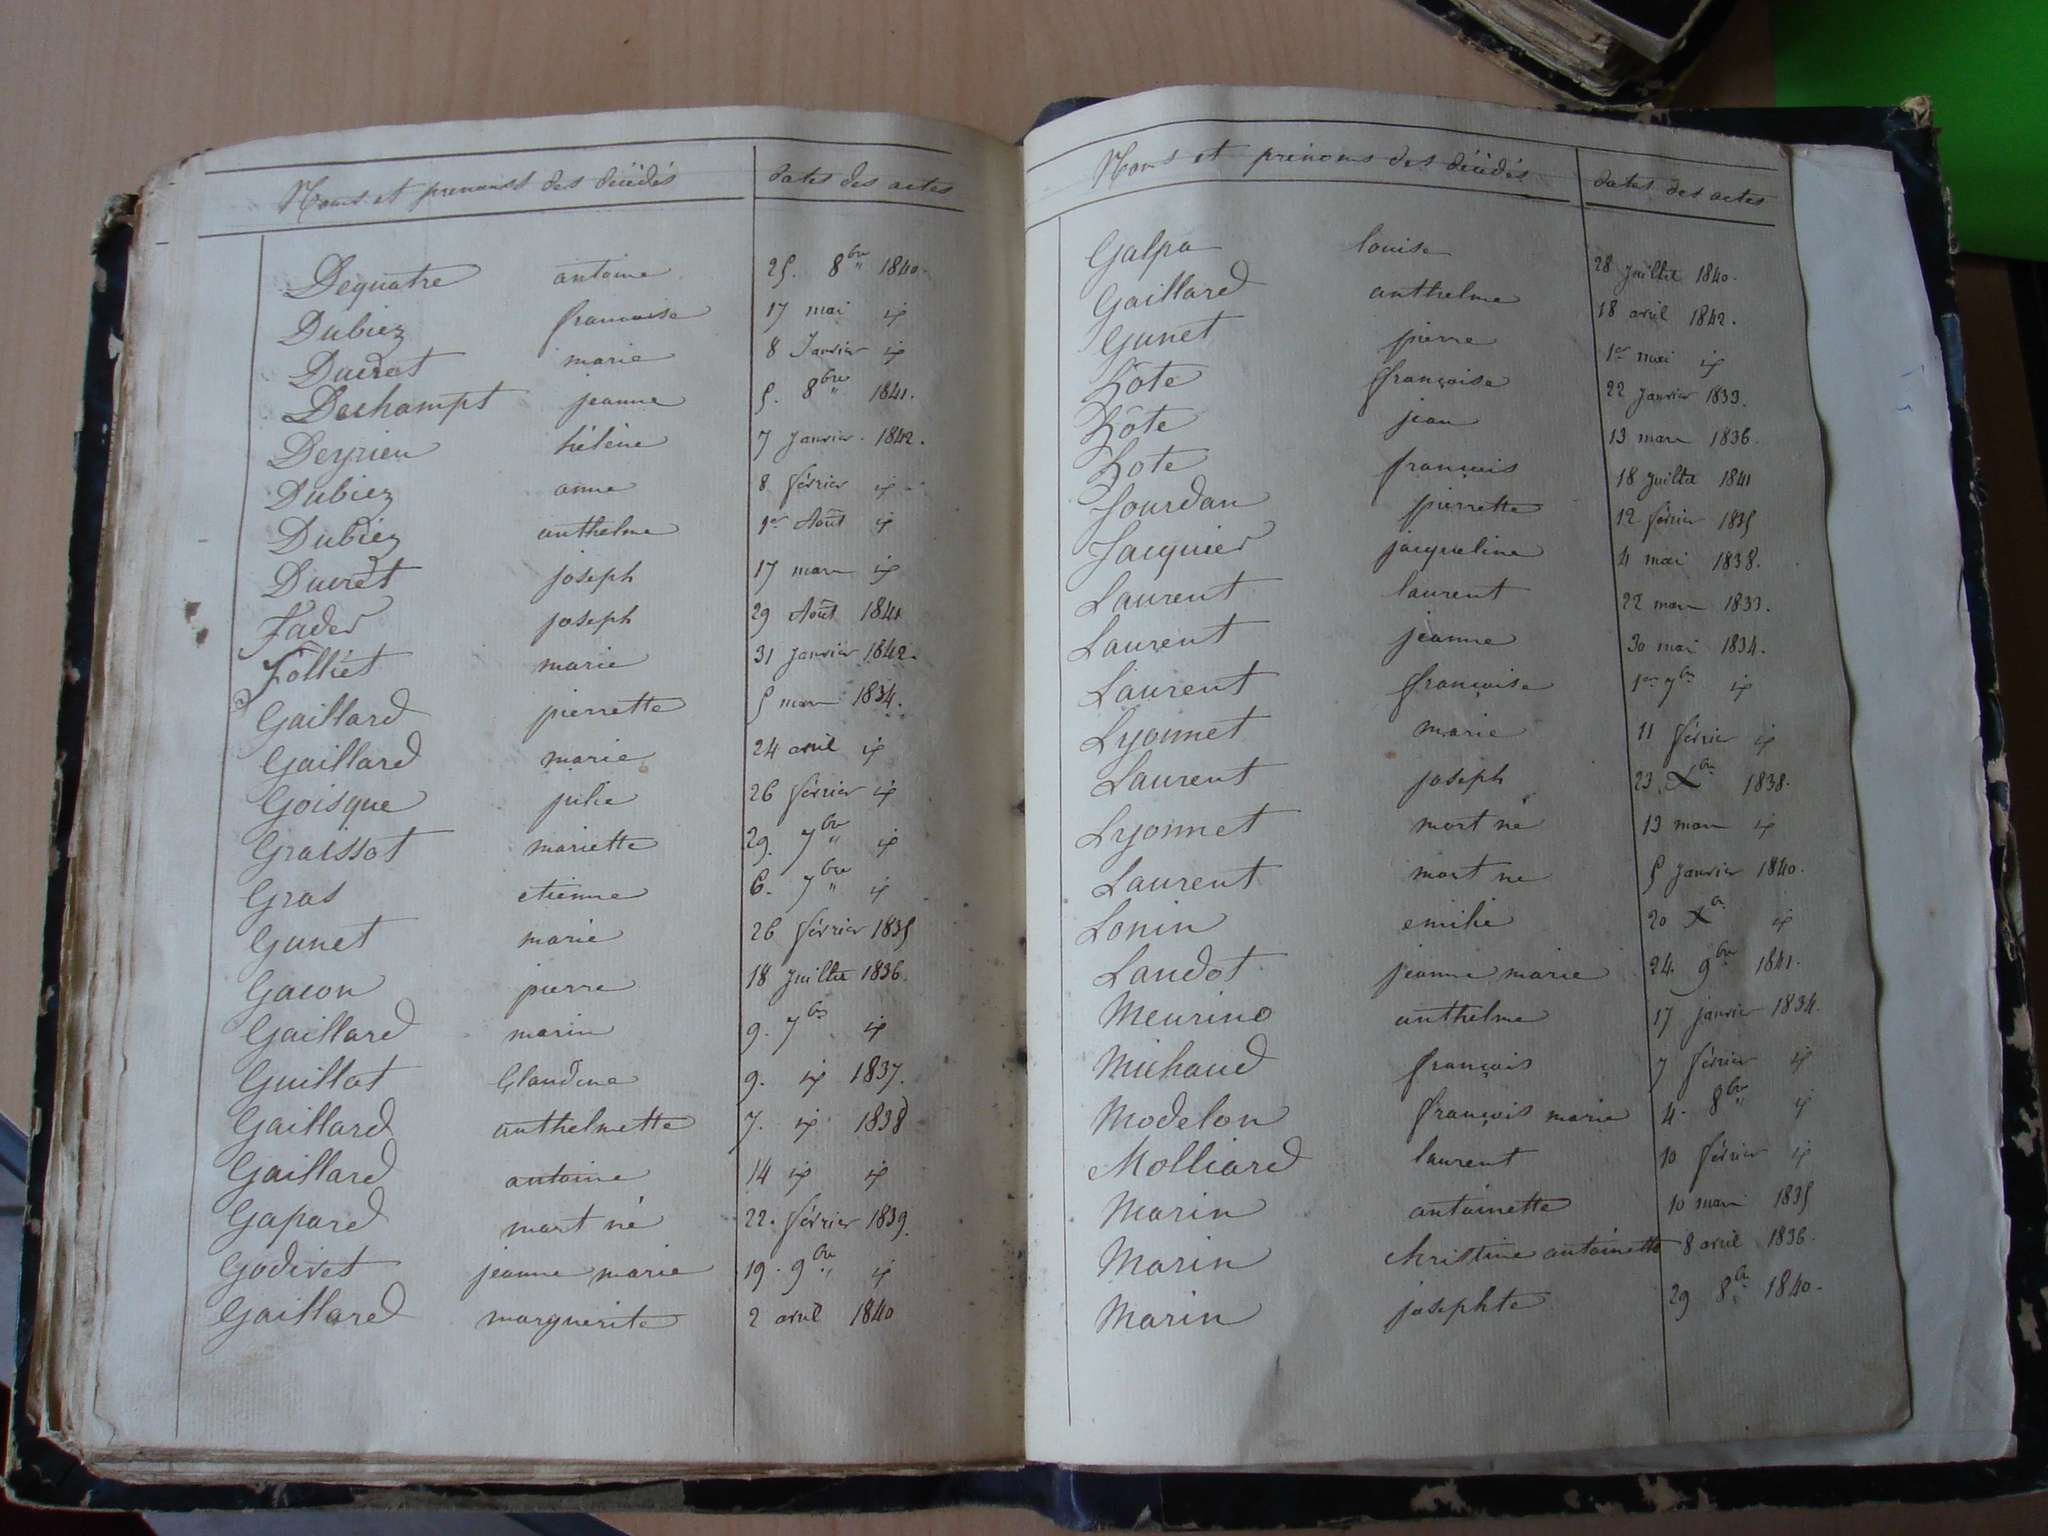 Noms et prénoms des décédés dates des actes
Dequatre antoine 25. 8bre 1840.
Dubiez francoise 17 mai id
Ducrot marie 8 Janvier id
Deschampt jeanne 5. 8bre 1841.
Deyrieu hélène 7 Janvier. 1842.
Dubiez anne 8 février id
Dubiez anthelme 1er Août id
Ducret joseph 17 mars id
Fader joseph 29 Août 1841
Folliet marie 31 janvier 1842.
Gaillard pierrette 5 mars 1834.
Gaillard marie 24 avril id
Goisque julie 26 février id
Graissot mariette 29. 7bre id
Gras etienne 6. 7bre id
Gunet marie 26 février 1835
Gacon pierre 18 Juillet 1836.
Gaillard marin 9. 7bre id
Guillot Claudine 9. id 1837.
Gaillard anthelmette 7. id 1838
Gaillard antoine 14 id id
Gapard mort né 22. février 1839.
Godivet jeanne marie 19. 9bre id
Gaillard marguerite 2 avril 1840
Noms et prénoms des décédés dates des actes
Galpa louise 28 Juillet 1840.
Gaillard anthelme 18 avril 1842.
Gunet pierre 1er mai id
hôte françoise 22 Janvier 1833.
hôte jean 13 mars 1836.
hote françois 18 Juillet 1841
Jourdan pierrette 12 février 1835
Jacquier jacqueline 4 mai 1838.
Laurent laurent 22 mars 1833.
Laurent jeanne 30 mai 1834.
Laurent françoise 1er 7bre id
Lyonnet marie 11 février id
Laurent joseph 23. Xbre 1838.
Lyonnet mort né 13 mars id
Laurent mort né 5 Janvier 1840.
Lonin emilie 20 Xbre id
Landot jeanne marie 24. 9bre 1841.
Meurino anthelme 17 janvier 1834.
Michaud françois 7 février id
Modelon françois marie 4. 8bre id
Molliard laurent 10 février id
Marin antoinette 10 mars 1835
Marin christine antoinette 8 avril 1836.
Marin josephte 29 8bre 1840.